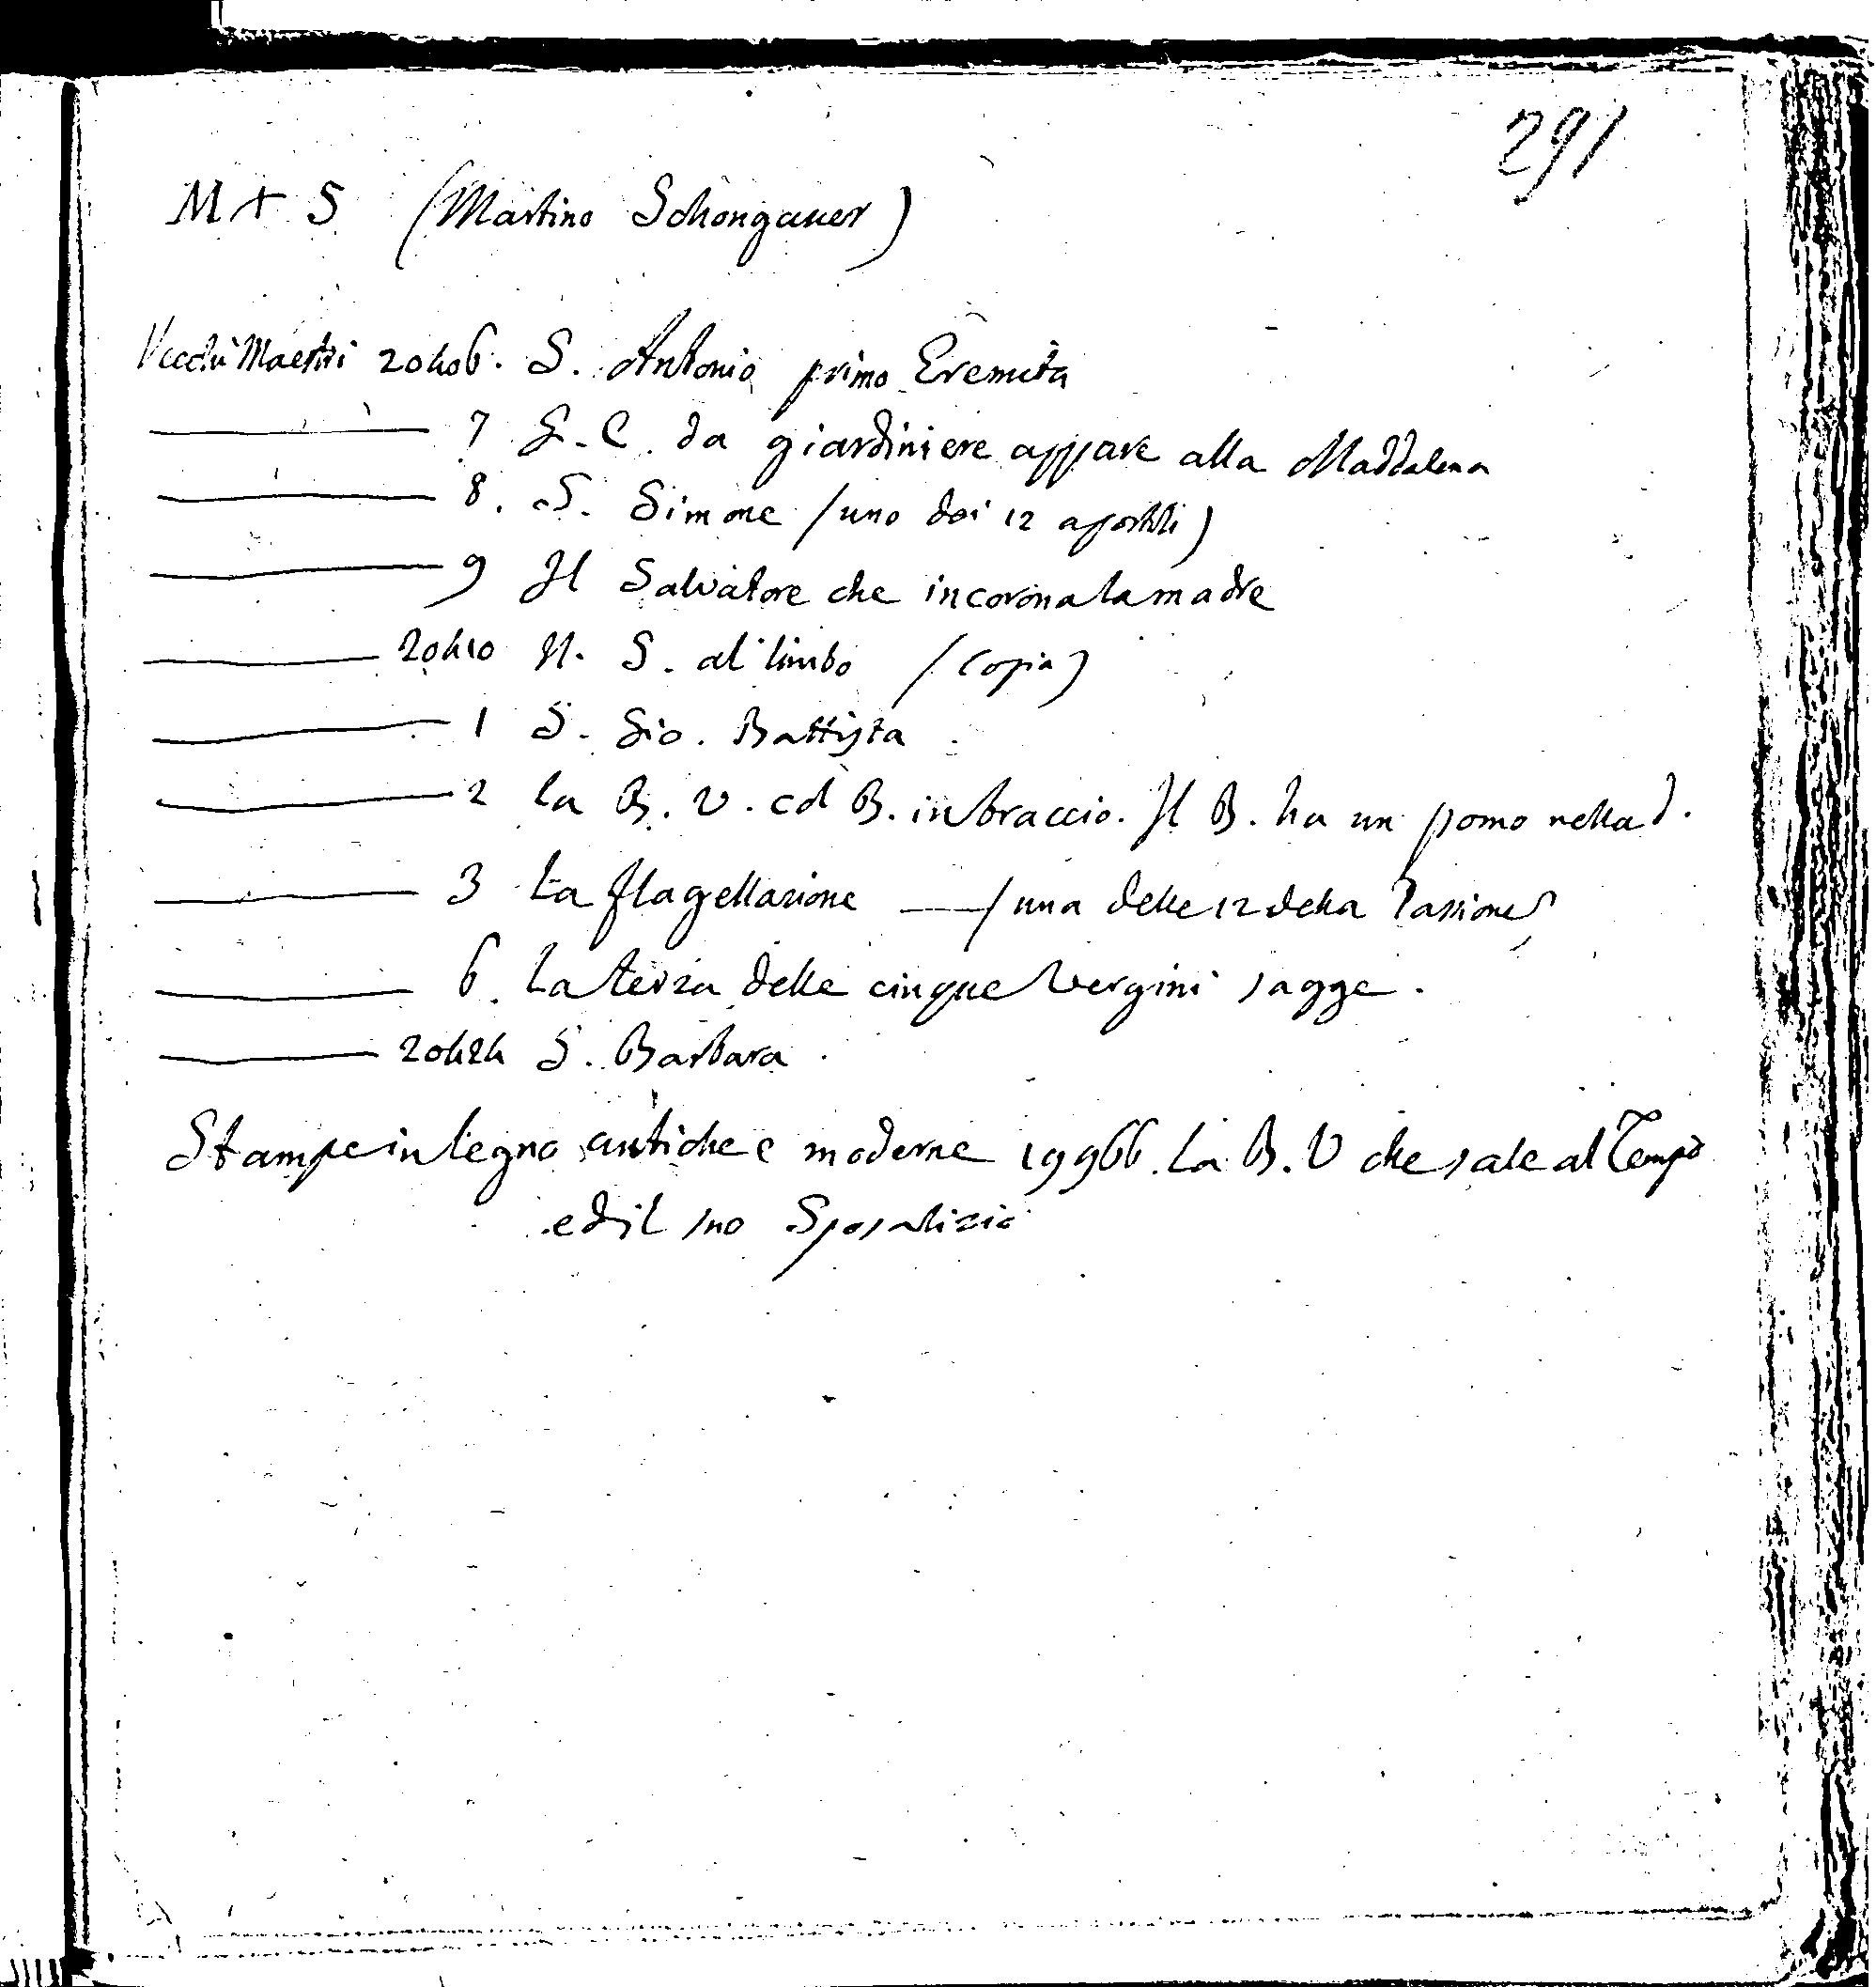 291
M + S (Martino Schongauer)
Vecchi Maestri 20406. S. Antonio primo Eremita
——— 7 G. C. da giardiniere appare alla Maddalena
——— 8. S. Simone (uno dei 12 apostoli)
——— 9 Il Salvatore che incorona la madre
——— 20410 N. S. al limbo (copia)
——— 1 S. Gio. Battista
——— 2 la B. V. col B. in braccio. Il B. ha un pomo nella d.
——— 3 La flagellazione —— (una delle 12 della Passione)
——— 6. La terza delle cinque Vergini sagge.
——— 20424 S. Barbara.
Stampe in legno antiche e moderne 19966. La B. V che sale al Tempio
ed il suo Sposalizio